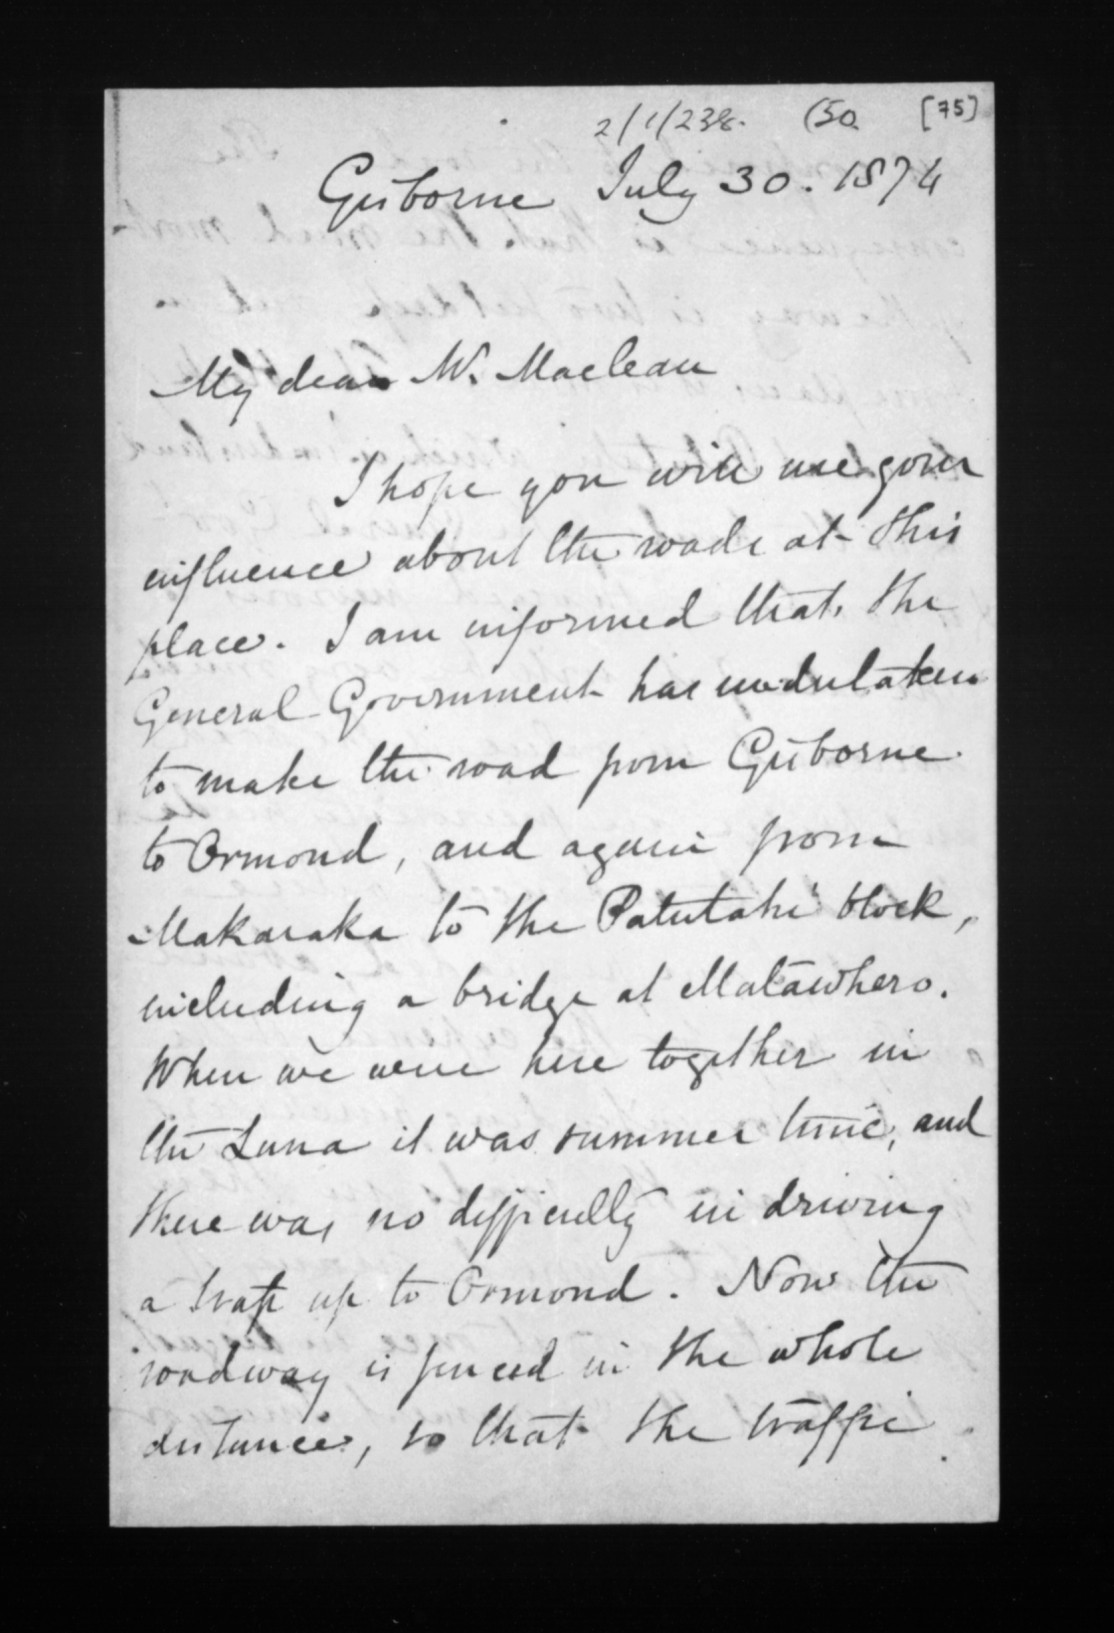 2/1/238. (50. [75]
Gisborne July 30. 1874
My dear Mr. Maclean
I hope you will use your
influence about the roads at this
place. I am informed that the
General Government has undertaken
to make the road from Gisborne
to Ormond, and again from
Makaraka to the Patutahi block,
including a bridge at Matawhero.
When we were here together in
the Luna it was summer time, and
there was no difficulty in driving
a trap up to Ormond. Now the
roadway is fenced in the whole
distance, so that the traffic